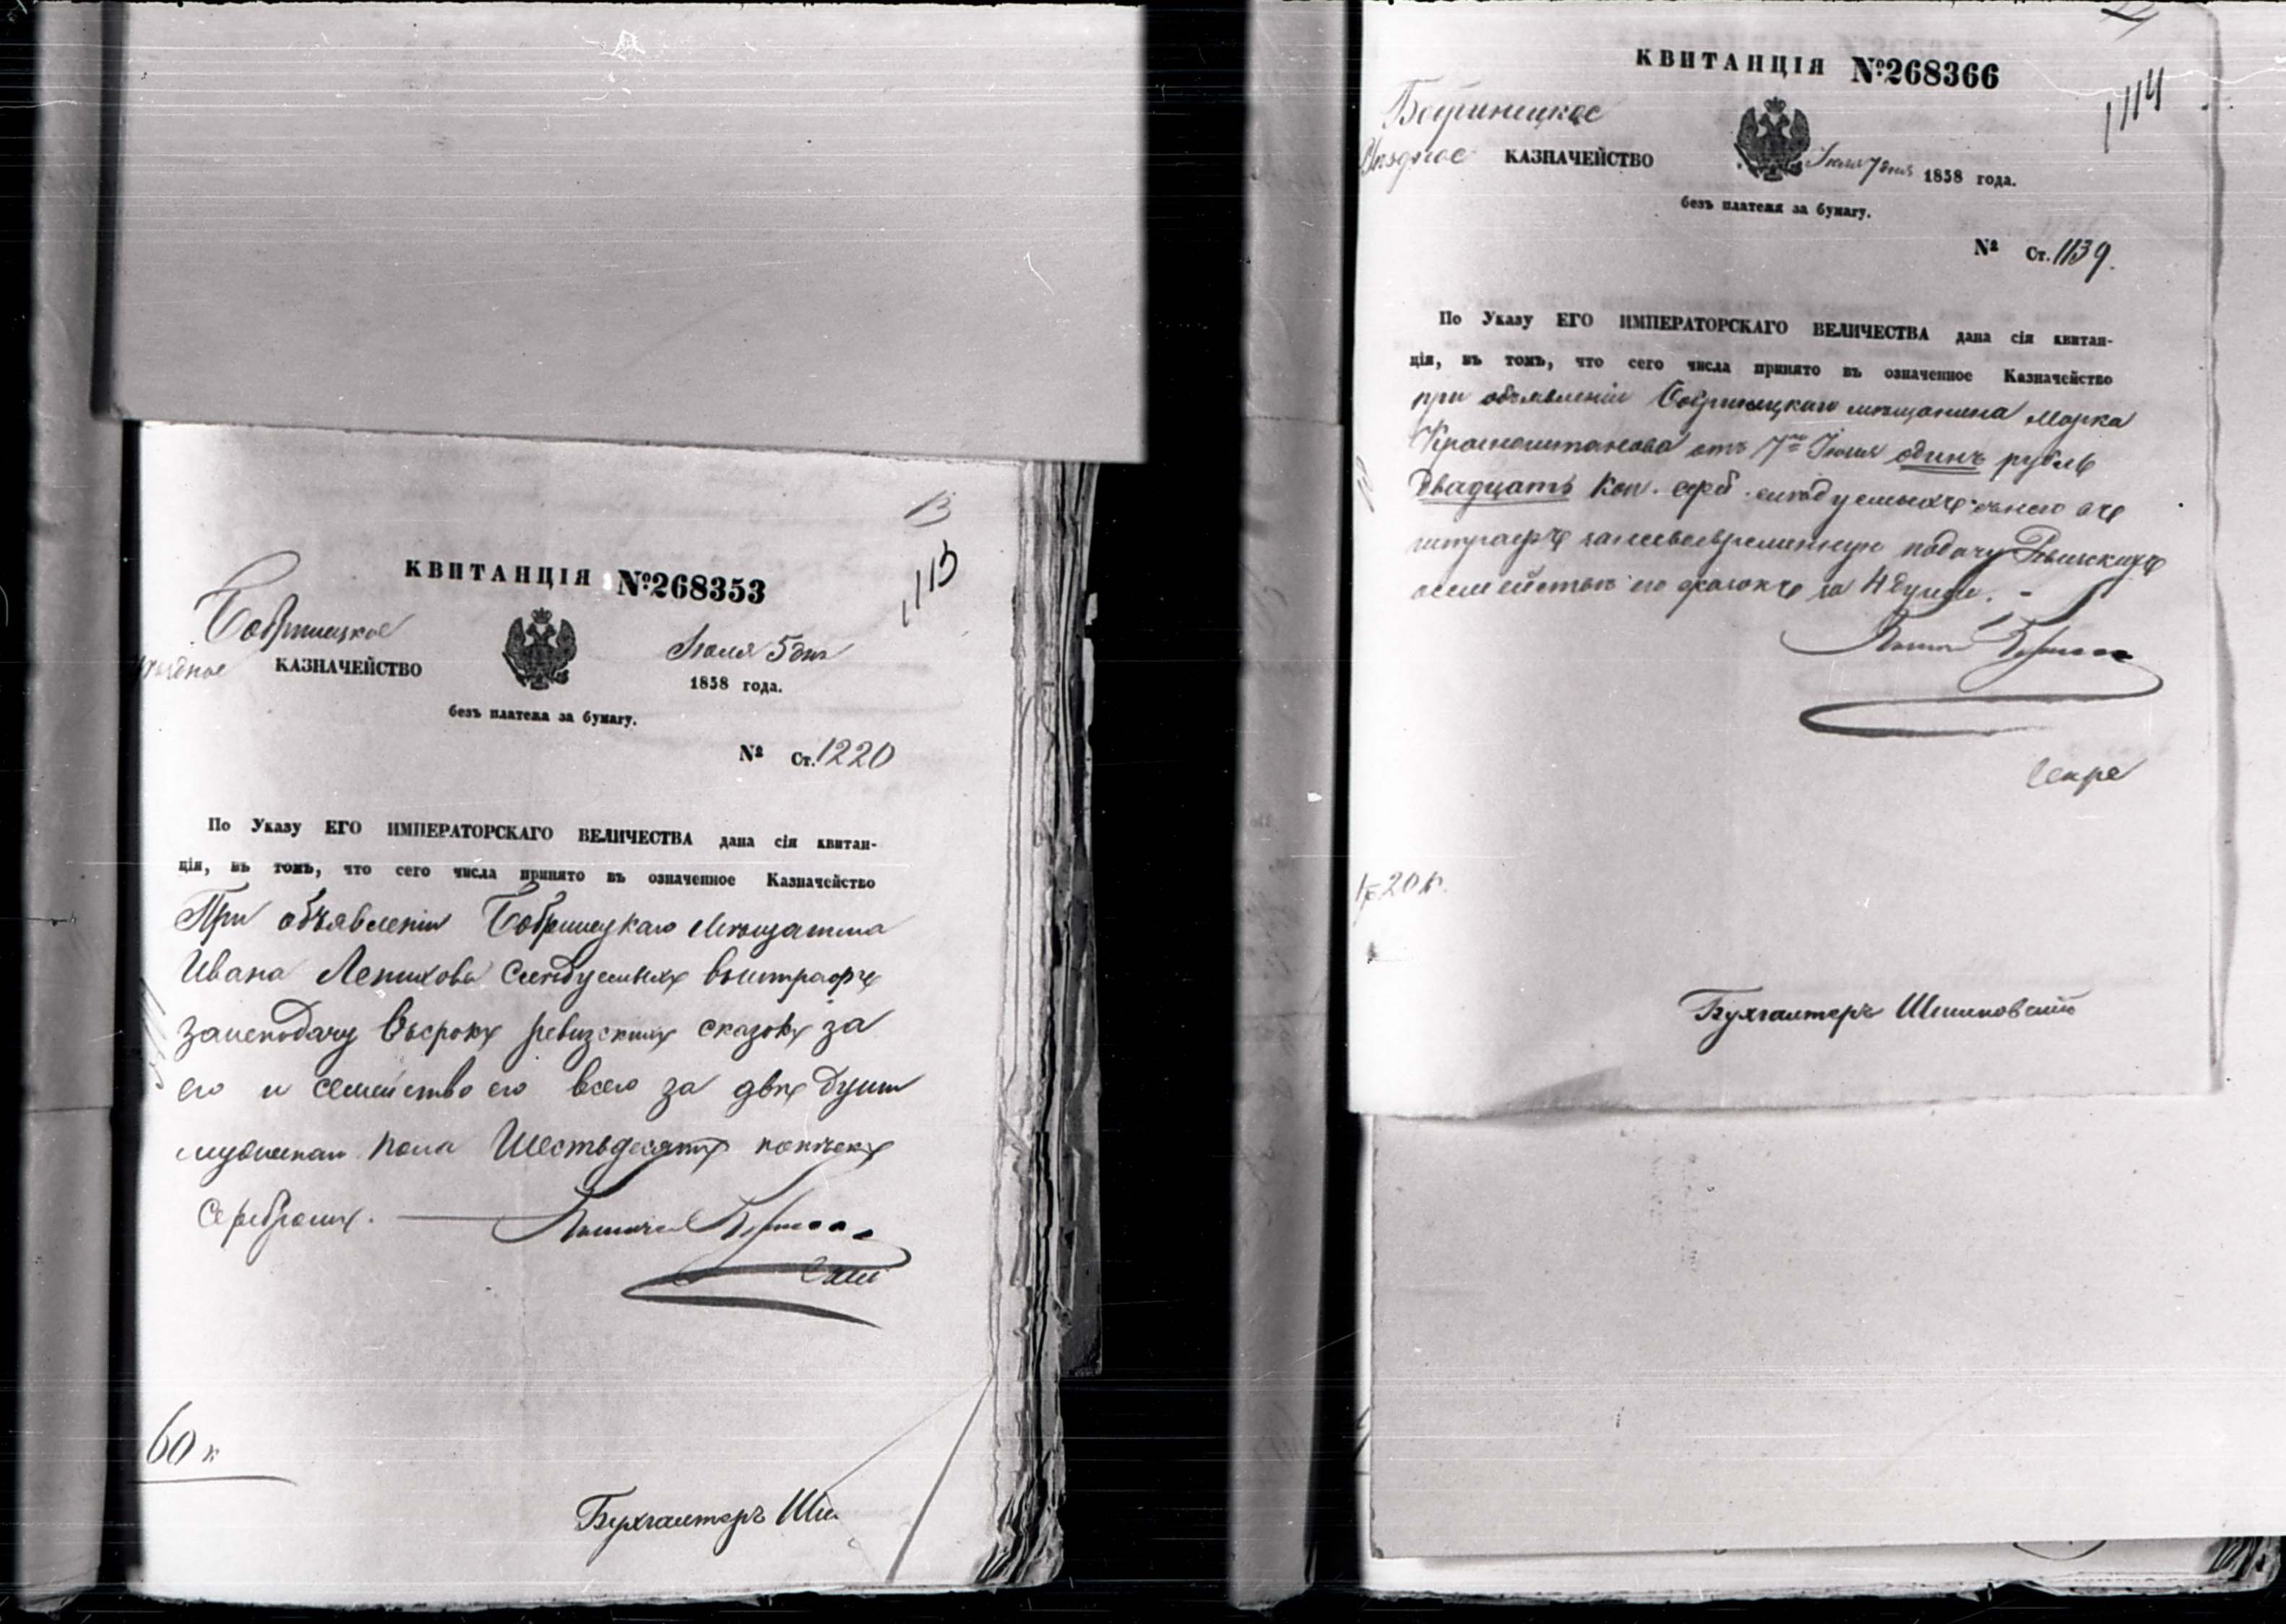 13
113
КВИТАНЦІЯ №268353
Бобринецкое
уѣздное КАЗНАЧЕЙСТВО
Іюля 5 дня
1858 года.
безъ платежа за бумагу.
№ Ст. 1220
По Указу ЕГО ИМПЕРАТОРСКАГО ВЕЛИЧЕСТВА дана сія квитан-
ція, въ томъ, что сего числа принято въ означенное Казначейство
При объявленіи Бобринецкаго мѣщанина
Ивана слѣдуемыхъ въ штрафъ
за неподачу въ срокъ ревизскихъ сказокъ за
его и семейство его всего за двѣ души
мужескаго пола Шестьдесятъ копѣекъ
Серебромъ.
60 к
Бухгалтеръ
114
КВИТАНЦІЯ №268366
Бобринецкое
Уѣздное КАЗНАЧЕЙСТВО
7 дня 1858 года.
безъ платежа за бумагу.
№ Ст. 1139.
По Указу ЕГО ИМПЕРАТОРСКАГО ВЕЛИЧЕСТВА дана сія квитан-
ція, въ томъ, что сего числа принято въ означенное Казначейство
при объявленіи Бобринецкаго мѣщанина Марка
отъ 7го одинъ рубль
двадцать коп. сереб. слѣдуемыхъ съ него въ
штрафъ за несвоевременную подачу Ревизскихъ
о семействѣ его сказокъ за 4 души.
1 р 20 к.
Бухгалтеръ